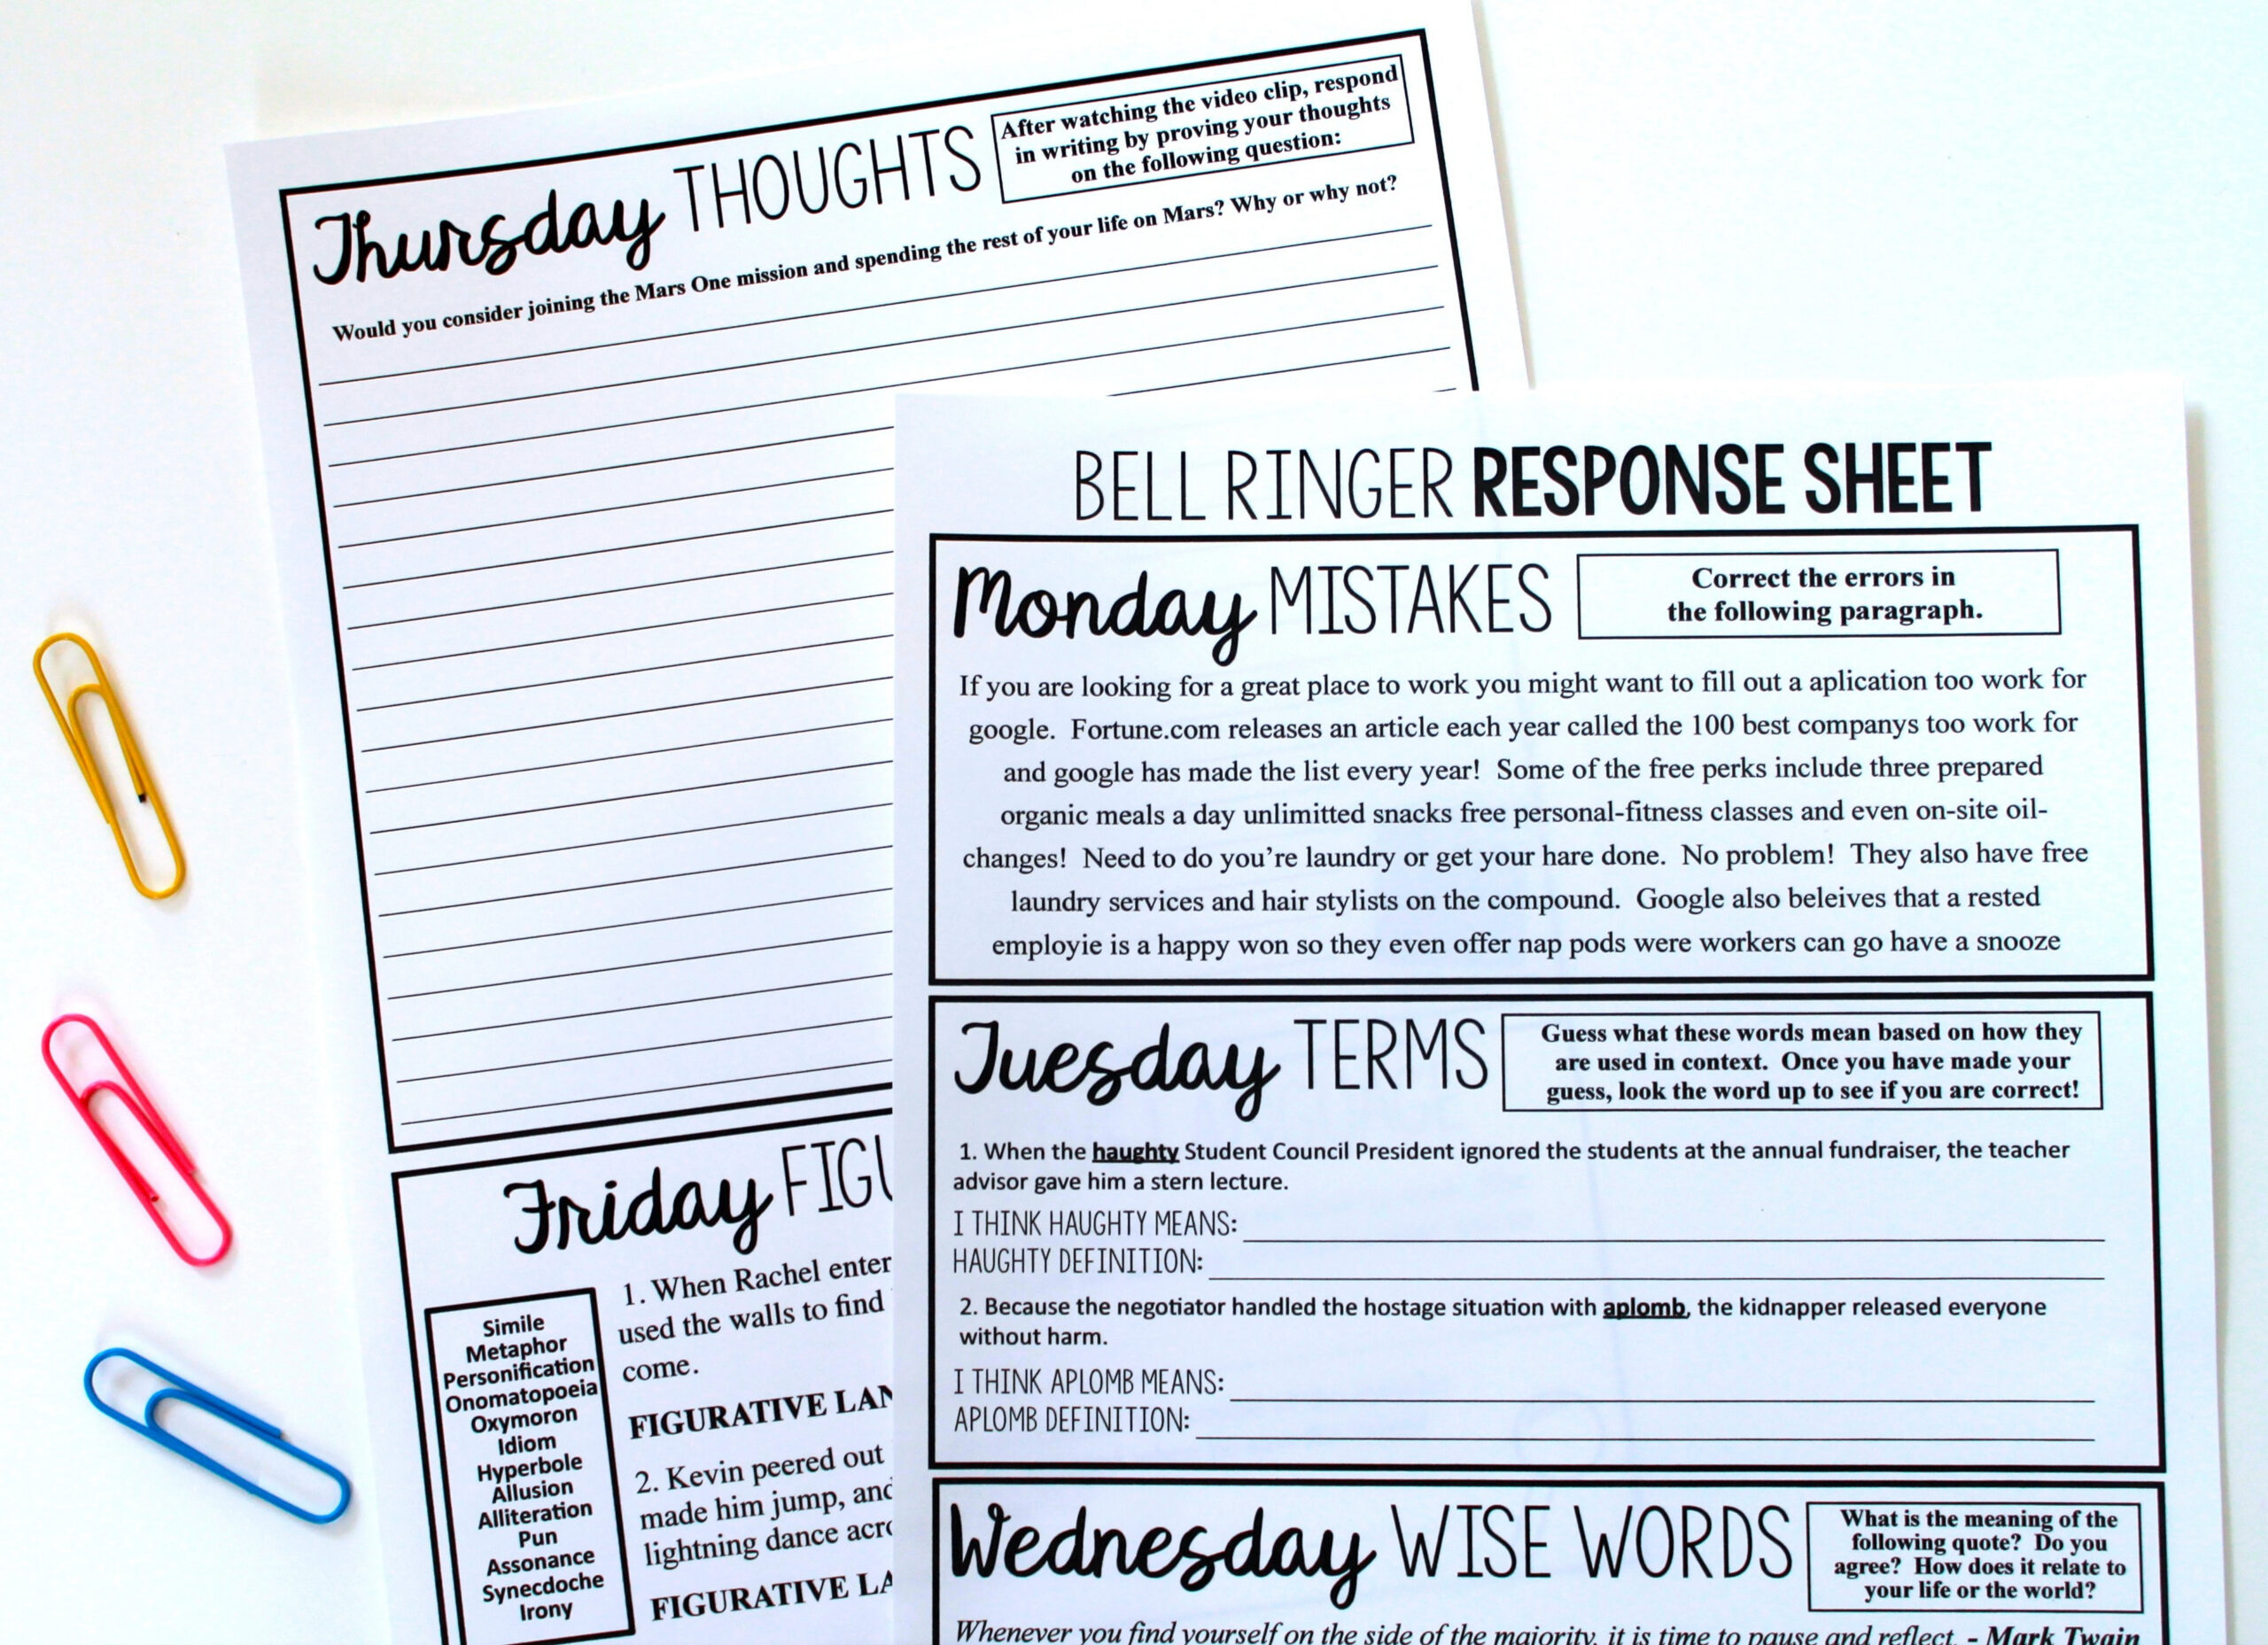 Thursday THOUGHTS
After watching the video clip, respond
in writing by proving your thoughts
on the following question:
Would you consider joining the Mars One mission and spending the rest of your life on Mars? Why or why not?
Friday FIGU
Simile
Metaphor
Personification
Onomatopoeia
Oxymoron
Idiom
Hyperbole
Allusion
Alliteration
Pun
Assonance
Synecdoche
Irony
1. When Rachel enter
used the walls to find
come.
FIGURATIVE LAN
2. Kevin peered out
made him jump, and
lightning dance acro
FIGURATIVE LA
BELL RINGER RESPONSE SHEET
Monday MISTAKES
Correct the errors in
the following paragraph.
If you are looking for a great place to work you might want to fill out a aplication too work for
google. Fortune.com releases an article each year called the 100 best companys too work for
and google has made the list every year! Some of the free perks include three prepared
organic meals a day unlimitted snacks free personal-fitness classes and even on-site oil-
changes! Need to do you're laundry or get your hare done. No problem! They also have free
laundry services and hair stylists on the compound. Google also beleives that a rested
employie is a happy won so they even offer nap pods were workers can go have a snooze
Tuesday TERMS
Guess what these words mean based on how they
are used in context. Once you have made your
guess, look the word up to see if you are correct!
1. When the haughty Student Council President ignored the students at the annual fundraiser, the teacher
advisor gave him a stern lecture.
I THINK HAUGHTY MEANS:
HAUGHTY DEFINITION:
2. Because the negotiator handled the hostage situation with aplomb, the kidnapper released everyone
without harm.
I THINK APLOMB MEANS:
APLOMB DEFINITION:
Wednesday WISE WORDS
What is the meaning of the
following quote? Do you
agree? How does it relate to
your life or the world?
Whenever you find yourself on the side of the majority, it is time to pause and reflect. - Mark Twain